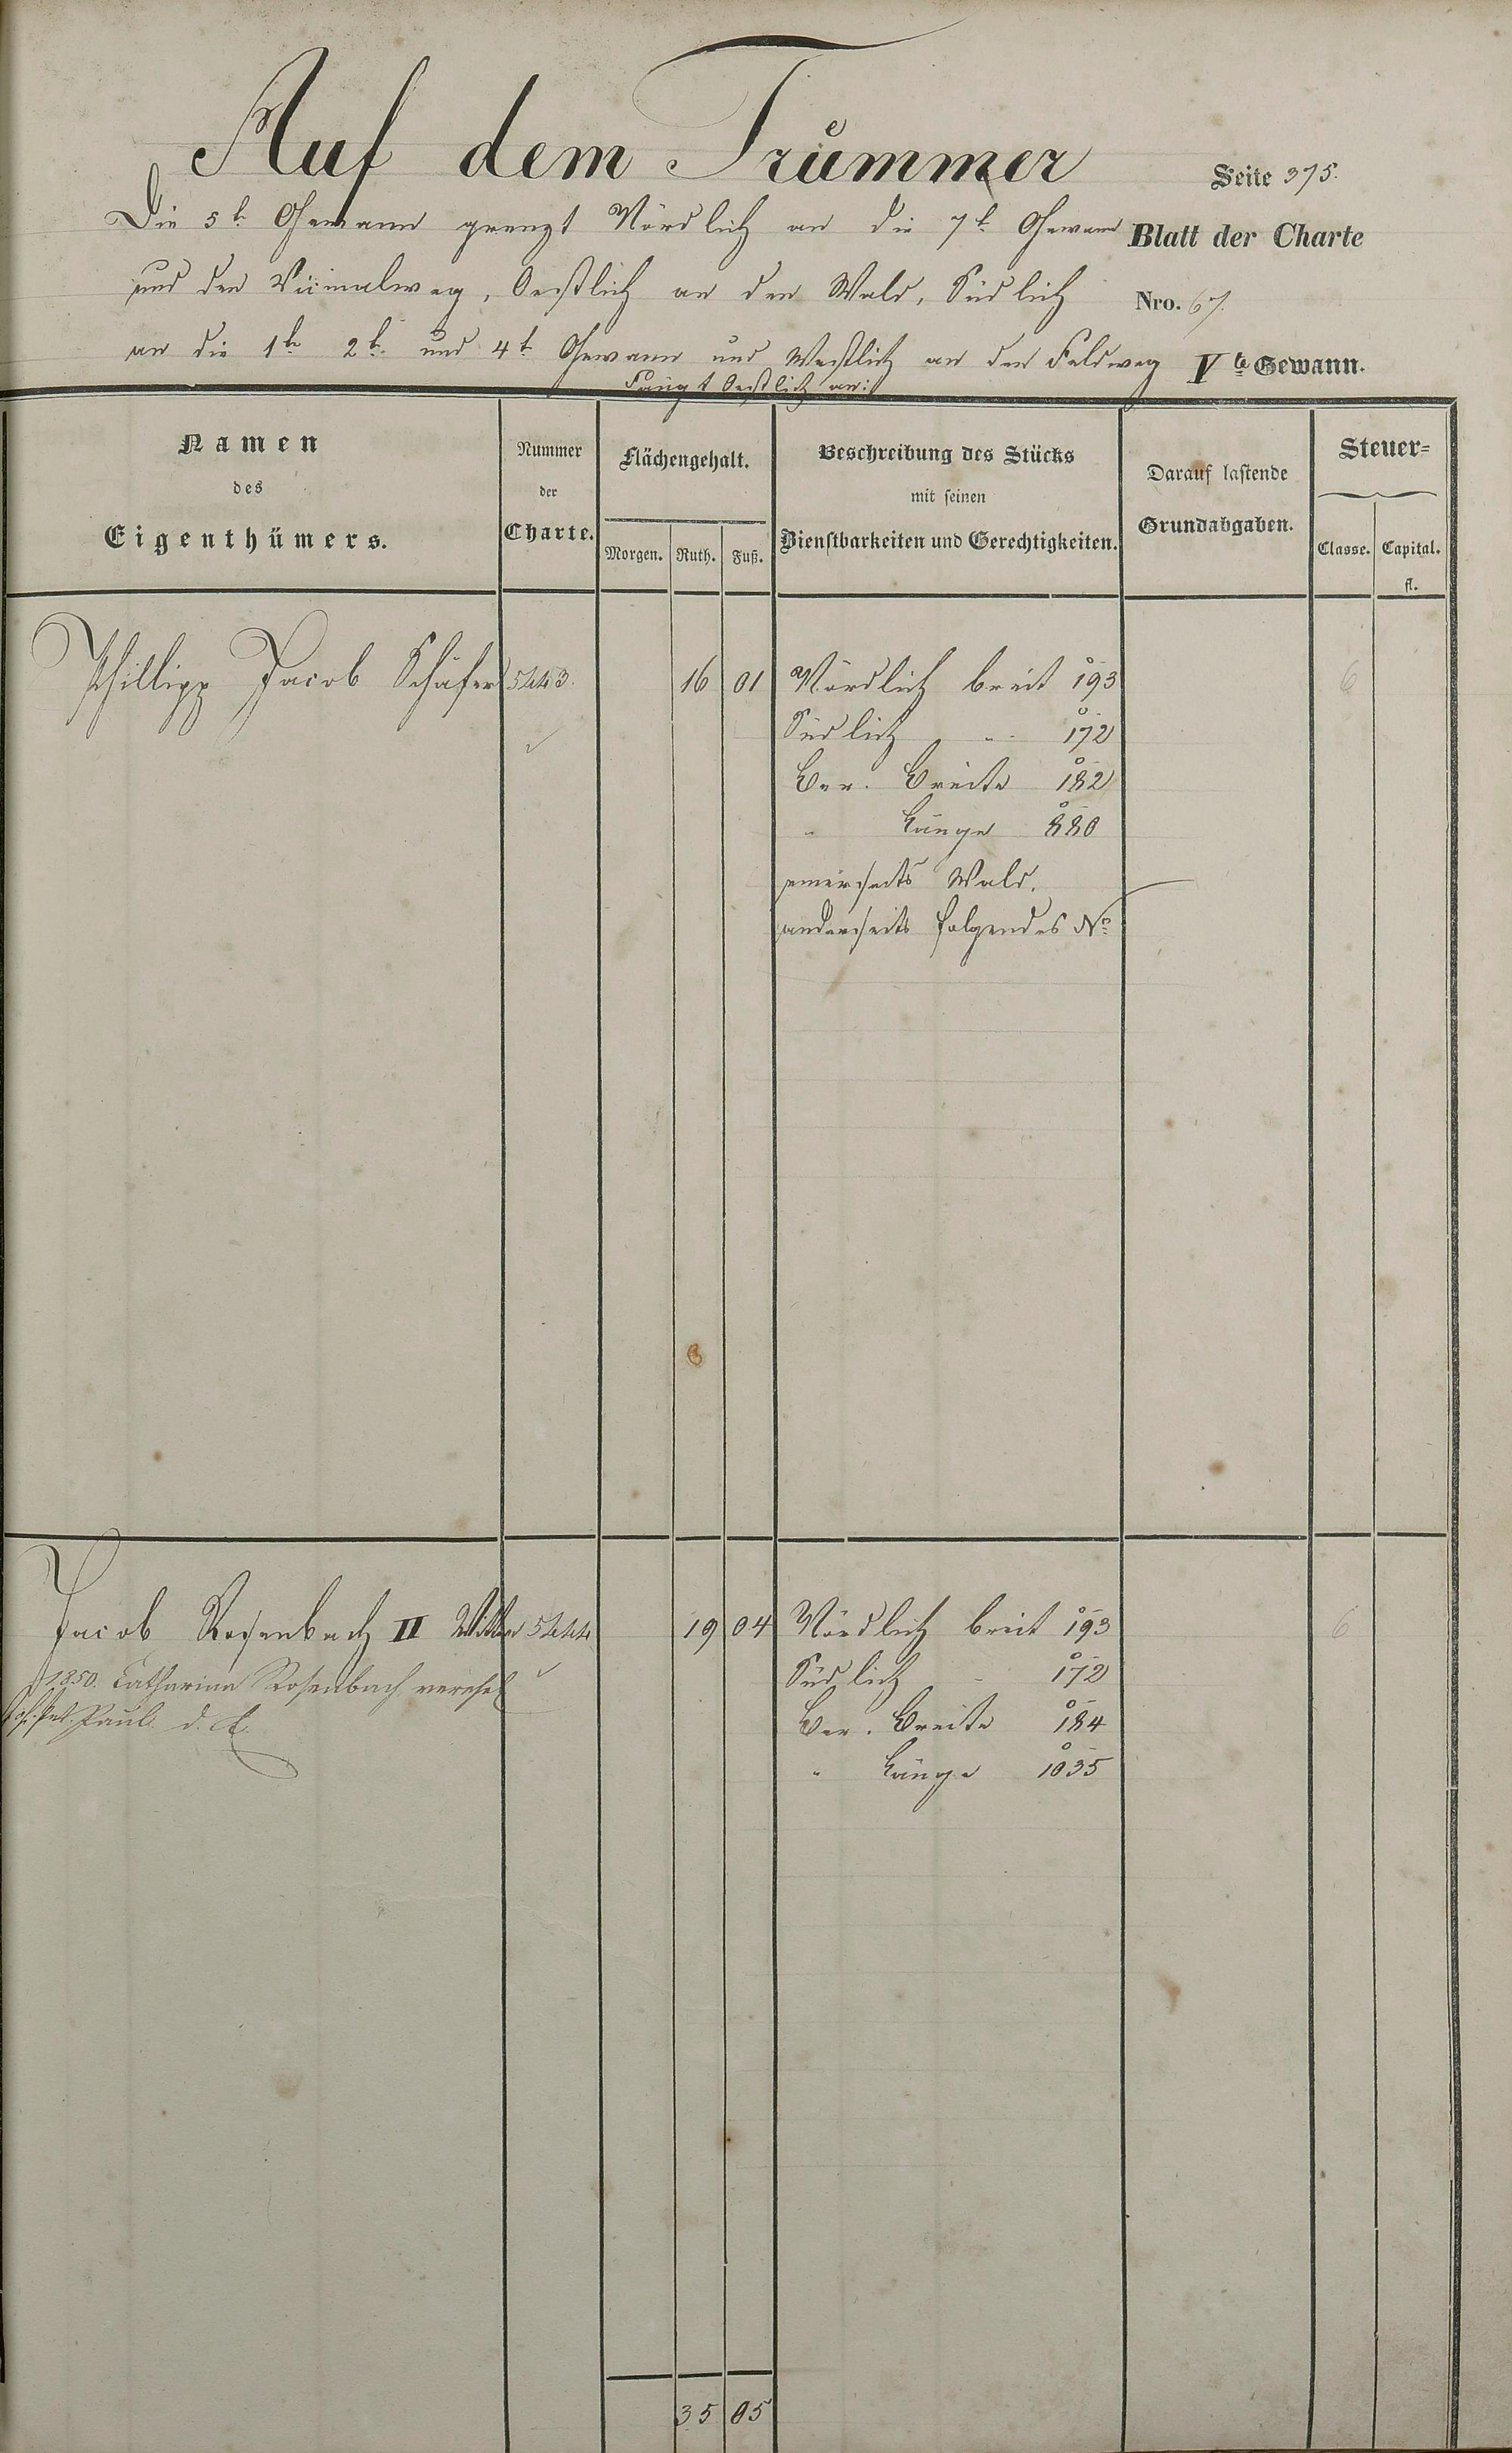 Auf dem Trümmer
Seite 375.
Die 5te Gewann grenzt Nördlich an die 7te Gewann
Blatt der Charte
und den Vicinalweg, Oestlich an den Wald, Südlich
Nro. 67.
an die 1te 2te und 4te Gewann und Westlich an den Feldweg
Vte Gewann.
Fängt Oestlich an:
Namen
des
Eigenthümers.
Nummer
der
Charte.
Flächengehalt.
Morgen. Ruth. Fuß.
Beschreibung des Stücks
mit seinen
Dienstbarkeiten und Gerechtigkeiten.
Darauf lastende
Grundabgaben.
Steuer=
Classe. Capital.
fl.
Phillipp Jacob Schäfer 5443. 16 01 Nördlich breit 193 6
Südlich " 172
Ber. Breite 182
" Länge 880
einerseits Wald.
anderseits folgendes No
Jacob Rosenbach II Wittwe 5444 19 04 Nördlich breit 193 6
1850. Catharina Rosenbach verehel
Südlich - 172
Pet. Paul. d. A.
Ber. Breite 184
" Länge 1035
35 05